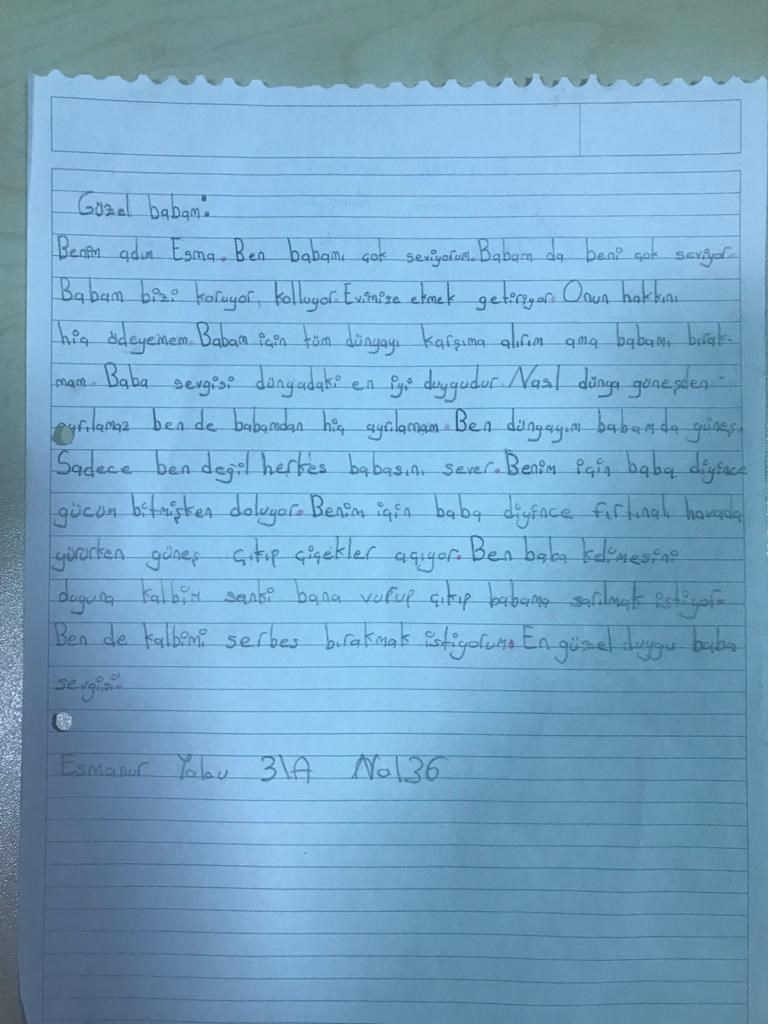 Güzel babam:
Benim adım Esma. Ben babamı çok seviyorum. Babam da beni çok seviyor.
Babam bizi koruyor, kolluyor. Evimize ekmek getiriyor. Onun hakkını
hiç ödeyemem. Babam için tüm dünyayı karşıma alırım ama babamı bırak-
mam. Baba sevgisi dünyadaki en iyi duygudur. Nasıl dünya güneşden
ayrılamaz ben de babamdan hiç ayrılamam. Ben dünyayım babamda güneş.
Sadece ben değil herkes babasını sever. Benim için baba diyince
gücüm bitmişken doluyor. Benim için baba diyince fırtınalı havada
yürürken güneş çıkıp çiçekler açıyor. Ben baba kelimesini
duyunca kalbim sanki bana vurup çıkıp babama sarılmak istiyor.
Ben de kalbimi serbes bırakmak istiyorum. En güzel duygu baba
sevgisi.
Esmanur 3\A No136